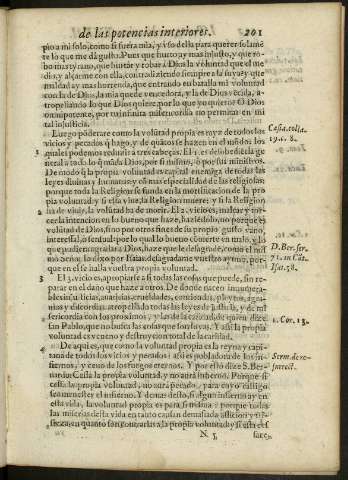 de las potencias interiores. 201
pio a mi solo, como si fuera mia, y vso della para querer solamẽ
te lo que me dà gusto. Pues que hurto ay mas injusto, y que ro
bo mas tyrano, que hurtar y robar à Dios la voluntad que el me
dio, y alçarme con ella, contradiziendo siempre a la suya? y que
maldad ay mas horrenda, que entrando en batalla mi voluntad
con la de Dios, la mia quede vencedora, y la de Dios vẽcida, a-
tropellando lo que Dios quiere, por lo que yo quiero? O Dios
omnipotente, por vuestra misericordia no permitais en mi
tal injusticia.
Luego põderare como la volũtad propia es rayz de todos los
vicios y pecados q̃ hago, y de quãtos se hazen en el mũdo: los
quales podemos reduzir a tres cabeças. El 1. es desobediẽcia ge
neral a todo lo q̃ mãda Dios, por si mismo, ò por sus ministros.
De modo q̃ la propia volũtad es capital enemiga de todas las
leyes diuinas y humanas; y cõ mas especialidad de las religiosas:
porque toda la Religion se funda en la mortificacion de la pro
pia voluntad y si esta viue, la Religion muere: y si la Religion
ha de viuir, la voltad ha de morir. El 2. vicio es, mezclar y tor-
cer la intencion en lo bueno que haze, haziẽdolo, no porque es
volũtad de Dios, sino por otros fines de su propio gusto vano,
interessal, ò sensual, por lo qual lo bueno conuierte en malo, y lo
que pudiera agradar à Dios, haze que le desagrade, como el mis
mo Señor lo dixo por Isaias, desagradame vuestro ayuno, por-
que en el se halla vuestra propia voluntad.
El 3. vicio es, apropiarse a si todas las cosas que puede, sin re-
parar en el daño que haze a otros. De donde nacen innumera-
bles injusticias, auaricias, crueldades, contiendas, pleytos, aga-
uios y discordias, atropellando todas las leyes de justicia, y de mi
sericordia con los proximos, y las de la caridad, de quien dize
san Pablo, que no busca las cosas que son suyas. Y assi la propia
volũtad es veneno y destruycion total de la caridad.
De aqui es, que como la voluntad propia es la reyna y capi-
tana de todos los vicios y pecados; assi es pobladora de los in-
fiernos, y ceuo de los fuegos eternos. Y por esto dize S. Ber-
nardo: Cesse la propia voluntad, y no aurà infierno. Porque si
cessa la propia voluntad, no aurà pecado, para cuyo castigo
es menester el infierno. Y demas desto, si algun infierno ay en
esta vida, la voluntad propia es para si misma: porque todas
las miserias desta vida en tanto causan demasiada aflicion y tri-
steza, en quanto son contrarias a la propia voluntad, y si esta ces
N 5 sasse,
Cassia. colla.
19. c. 8.
D. Ber. ser.
71. in Cãt.
Isai. 58.
1. Cor. 13.
Serm. de re-
surrect.